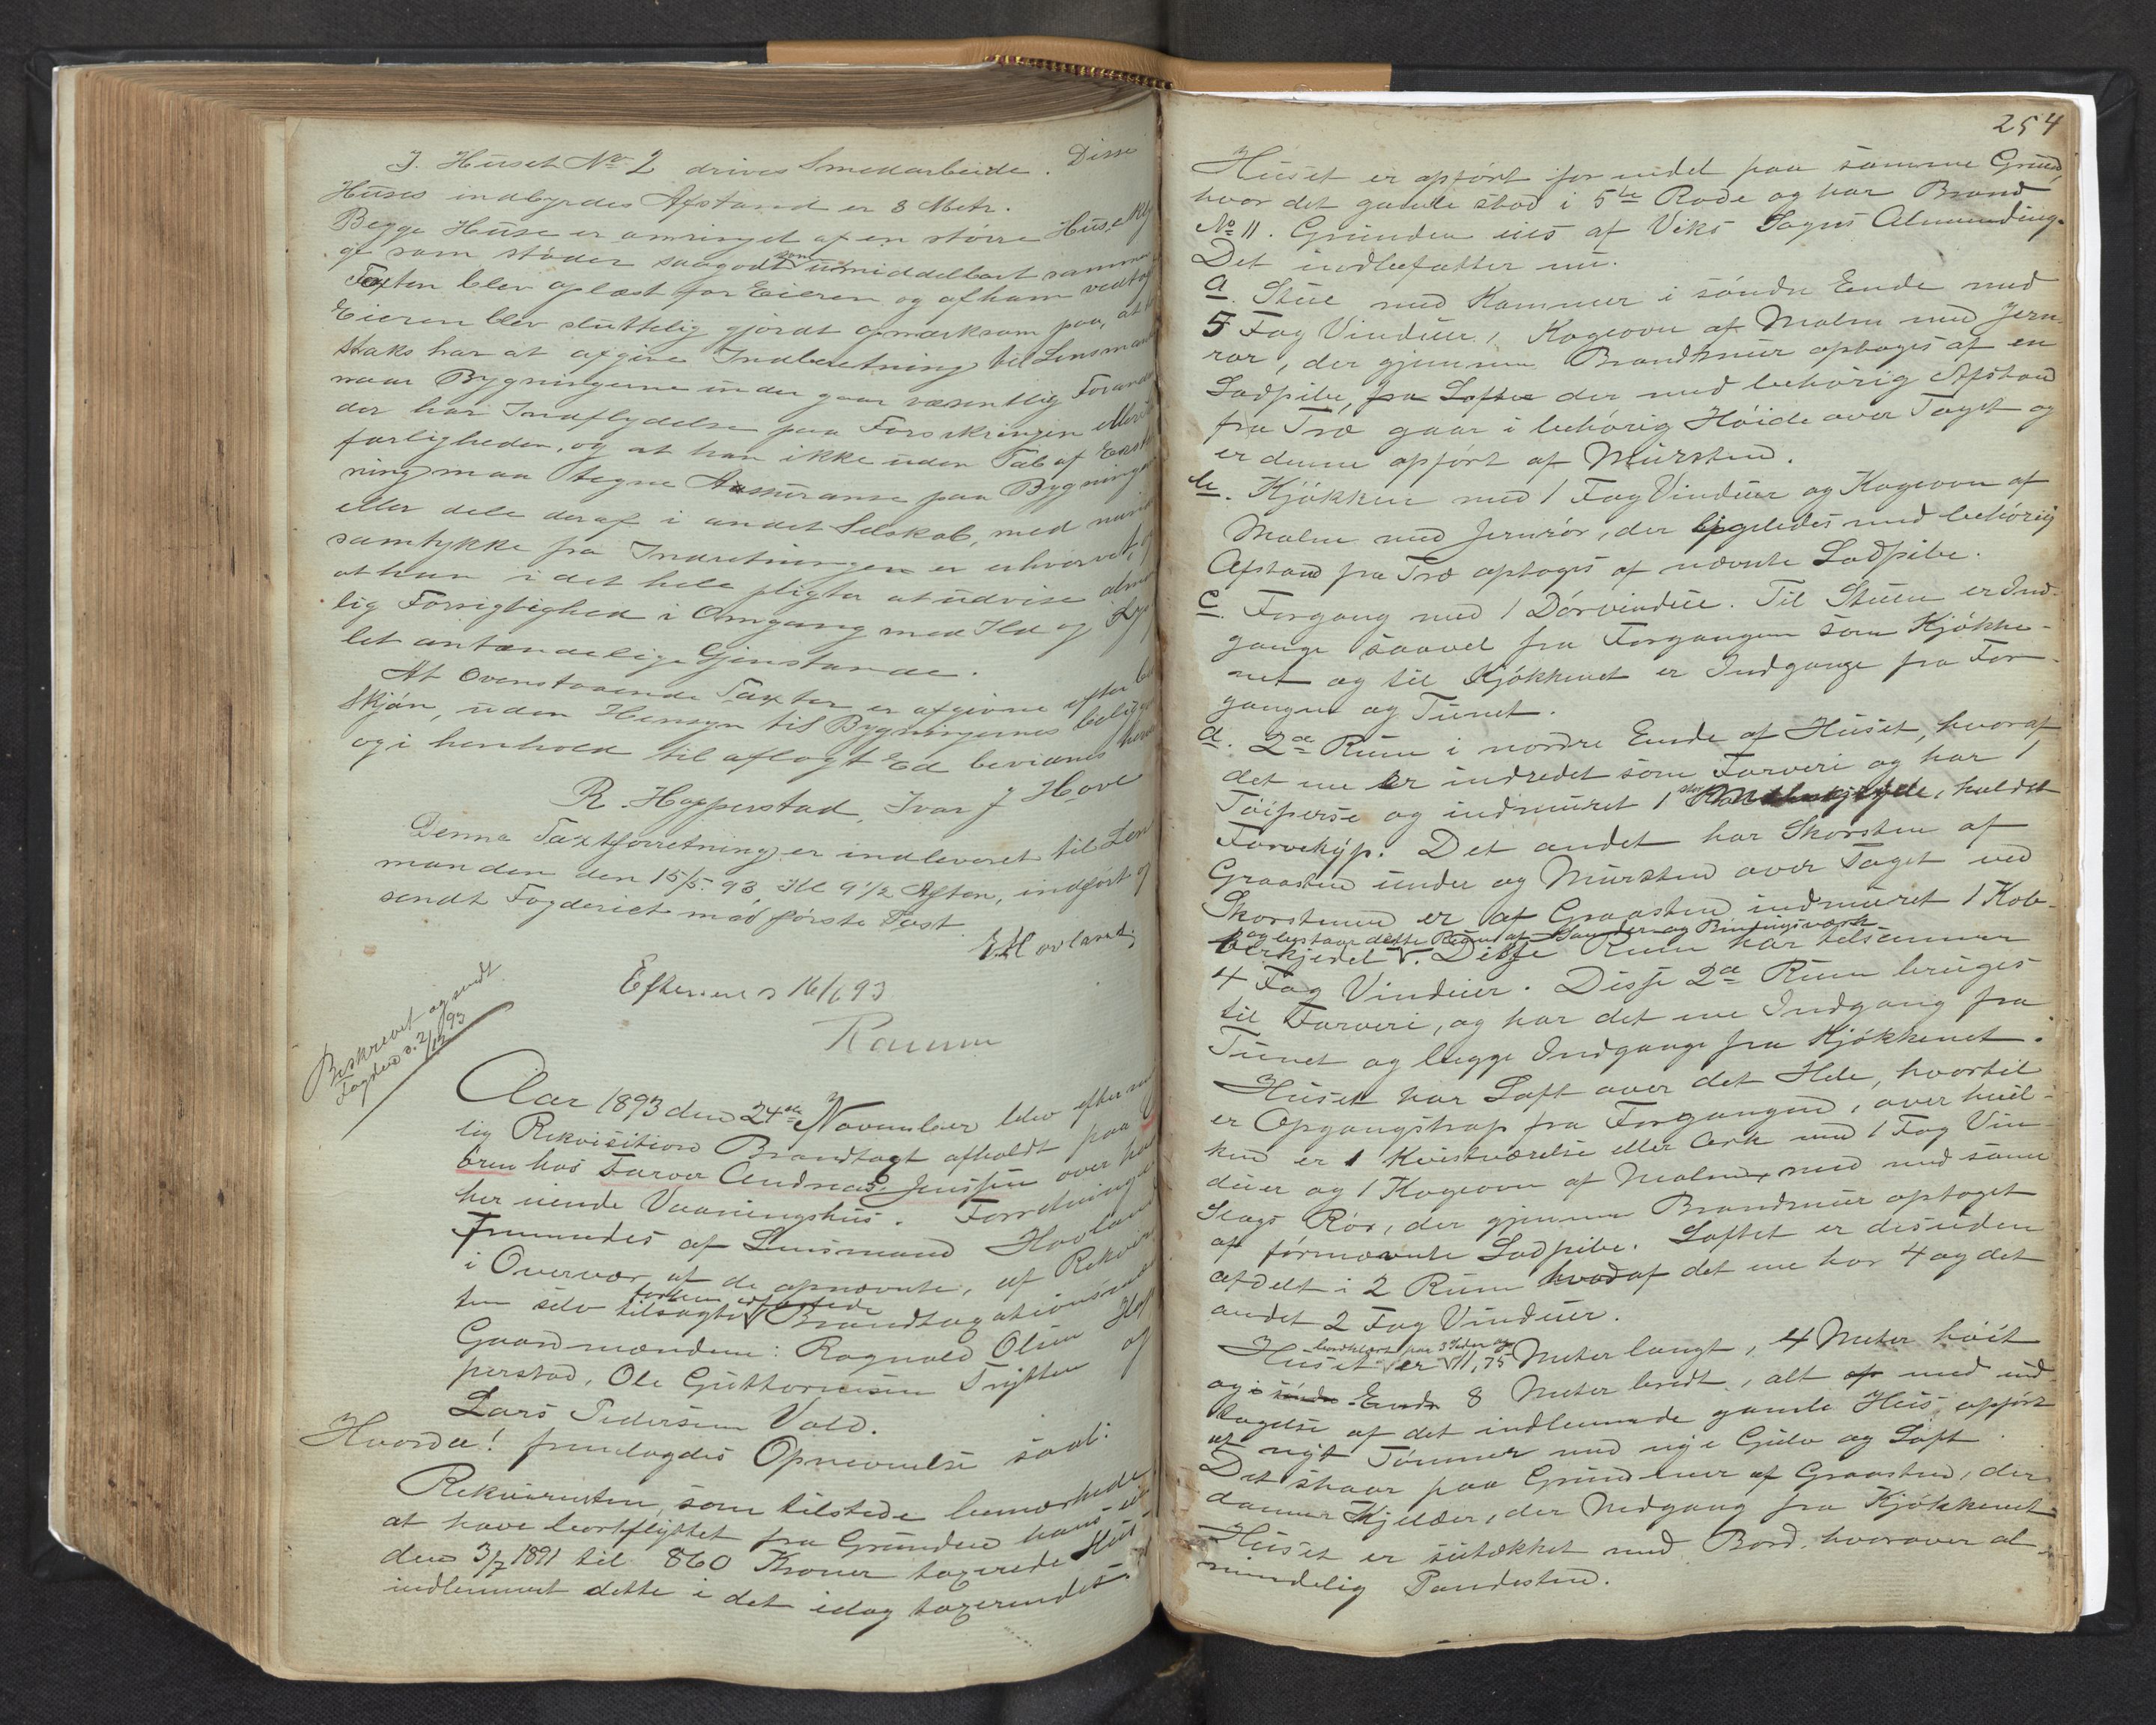 I. Huset No 2 drives Smedarbeide. Disse
Huses indbyrdes Afstand er 8 Metr.
Begge Huse er omringet af en större Huse
ge som stöder saagodt som umiddelbart sammen
Taxten blev oplæst for Eieren og af ham vedtag
Eieren blev sluttelig gjordt opmærksom paa, at
straks har at afgive Indberetning til Lensman
naar Bygningerne under gaar væsentlig Forand
der har Indflydelse paa Forsikringen eller
farligheden, og at han ikke uden Tab af Erstat
ning maa tegne Assuranse paa Bygning
eller dele deraf i andet Selskab, med mind
samtykke fra Indretningen er erhvervet, og
at han i det hele pligter at udvise almin
lig Forsigtighed i Omgang med Ild og
let antændelige Gjenstande.
At Ovenstaaende Taxter er afgivne efter
Skjön, uden Hensyn til Bygningernes belig
og i henhold til aflagt Ed bevidnes her
R. Hopperstad, Ivar J Hove
Denne Taxtforretning er indleveret til Lens
manden den 15/5. 93, Kl 9 1/2 Aften, indfört og
sendt Fogderiet med förste Post
E. Hovland
16/6 93
Beskrevet og sendt
Fogden d. 2/12 93
Aar 1893 den 24de November blev efter
lig Rekvisition Brandtaxt afholdt paa
ören hos Farver Andreas Jenssen over hans
her iende Vaaningshus. Forretningen
fremmedes af Lensmand Hovland
i Overvær af de opnævnte, af Rekviren
ten selv tilsagte Brandtaxationsmænd
Gaardmændene: Ragnald Olsen Hop
perstad, Ole Guttormsen Trytten og
Lars Pedersen Vold.
Hvorda! fremlagdes Opnævnelse saal:
Rekvirenten, som tilstede bemærkede
at have bortflyttet fra Grunden hans
den 3/7 1891 til 860 Kroner taxerede Hus
indlemmet dette i det idag taxerendes
254
Huset er opfört for endel paa samme Grund,
hvor det gamle stod i 5te Rode og har Brand
No 11. Grunden eies af Viks Sogns Almending.
Det indbefatter nu.
a. Stue med Kammer i söndre Ende med
5 Fag Vinduer, 1 Kogeovn af Malm med Jern-
rör, der gjennem Brandmur optages af en
Sodpibe, fra Loftet der med behörig Afstand
fra Træ gaar i behörig Höide over Taget og
er denne opfört af Mursten.
b. Kjökken med 1 Fag Vinduer og Kogeovn af
Malm med Jernrör, der ligeledes med behörig
Afstand fra Træ optages af nævnte Sodpibe.
c. Forgang med 1 Dörvindue. Til Stuen er Ind-
gange saavel fra Forgangen som Kjökke-
net og til Kjökkenet er Indgange fra For-
gangen og Tunet.
d. 2de Rum i nordre Ende af Huset, hvoraf
det ene er indredet som Farveri og har 1
Töiperse og indmuret 1 stor, kaldet
Farvekyp. Det andet har Skorsten af
Graasten under og Mursten over Taget ved
Skorstenen er af Graasten indmuret 1 Kob-
og bestaar dette Rum af
berkjedel. Disse Rum har tilsammen
4 Fag Vinduer. Disse 2de Rum bruges
til Farveri, og har det ene Indgang fra
Tunet og begge Indgange fra Kjökkenet.
Huset har Loft over det Hele, hvortil
er Opgangstrap fra Forgangen, over hvil-
ken er 1 Kvistværelse eller Ark med 1 Fag Vin-
duer og 1 Kogeovn af Malm med samme
Slags Rör, der gjennem Brandmur optaget
af förnævnte Sodpibe. Loftet er desuden
afdelt i 2 Rum hvoraf det ene har 4 og det
andet 2 Fag Vinduer.
bordklædt paa 3 Sider og
Huset er 11,75 Meter langt, 4 Meter höit
og i söndre Ende 8 Meter bredt, alt med und-
tagelse af det indlemmede gamle Hus, opfört
af nyt Tömmer med nye Gulv og Loft.
Det staar paa Grundmur af Graasten, der
danner Kjelder, der Nedgang fra Kjökkenet
Huset er sutækket med Bord, hvorover al-
mindelig Pandesten.